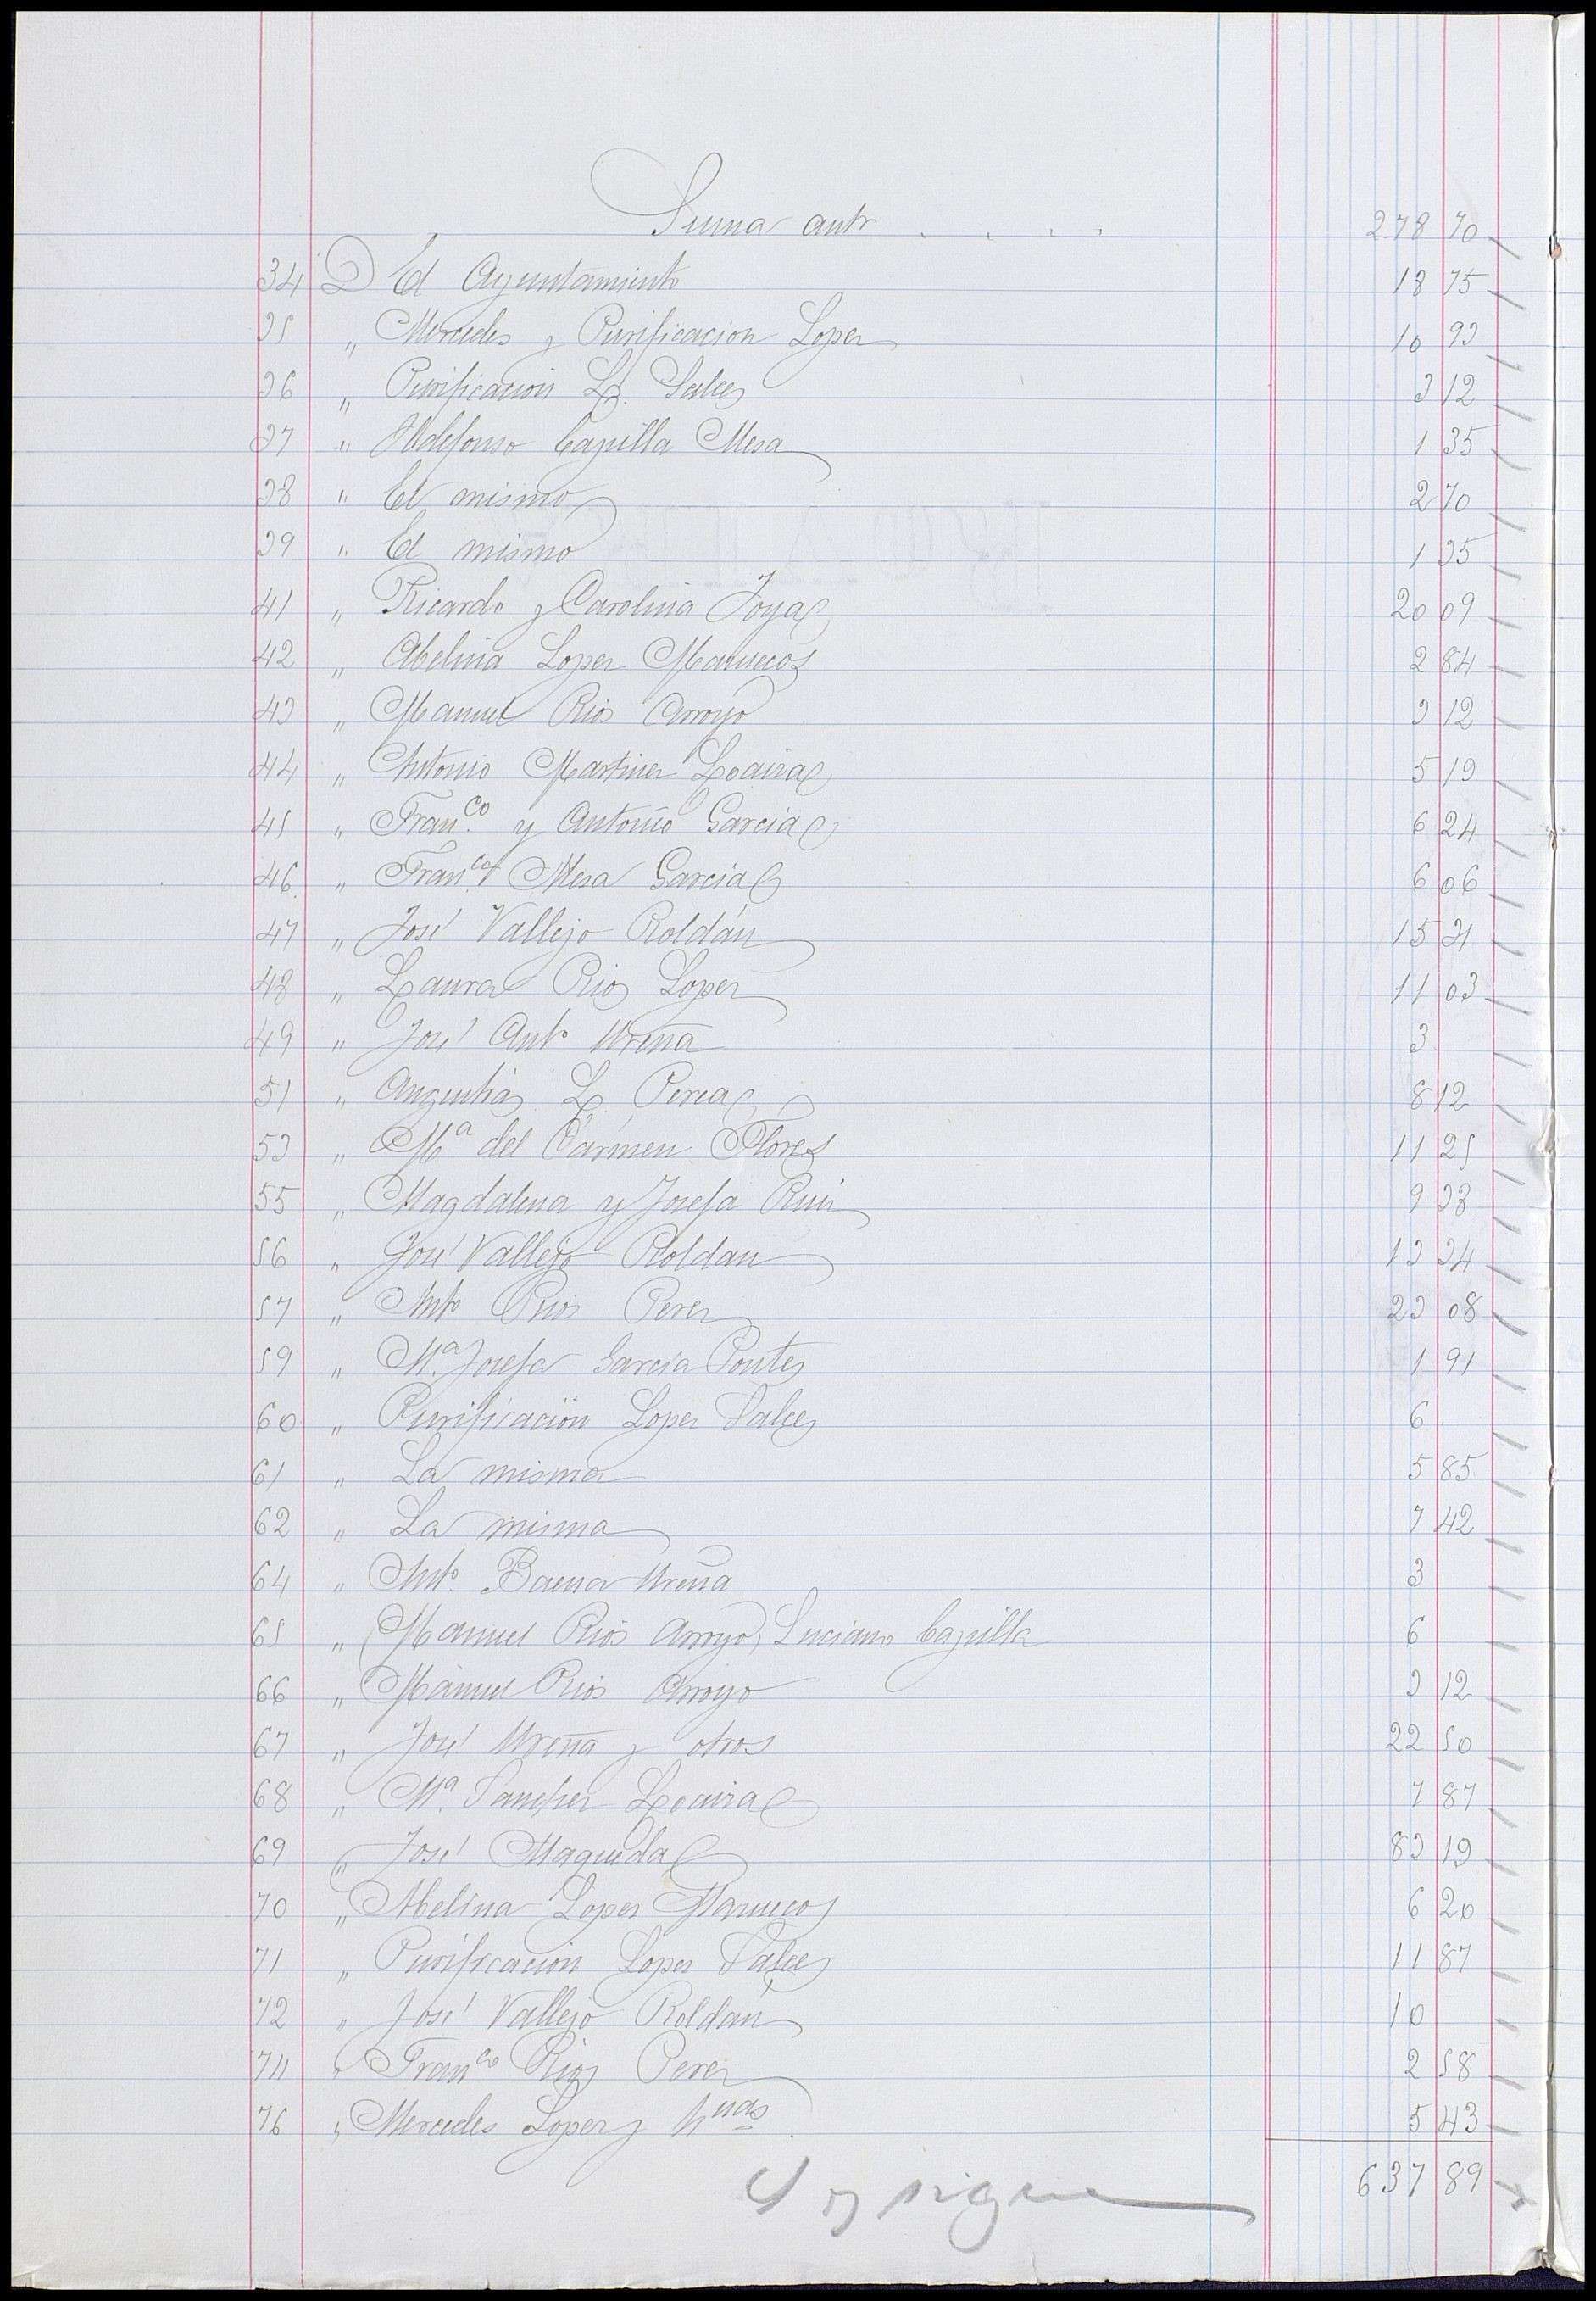 Suma antr . . . . 278 70
34 D El Ayuntamiento 18 75
35 " Mercedes y Purificacion Lopez 10 93
36 " Purificación L. Salces 3 12
37 " Ildefonso Capilla Mesa 1 35
38 " El mismo 2 70
39 " El mismo 1 35
41 " Ricardo y Carolina Joya 20 09
42 " Abelina Lopez Marruecos 2 84
43 " Manuel Rios Arroyo 3 12
44 " Antonio Martinez Loaiza 5 19
45 " Fran.co y Antonio Garcia 6 24
46 " Fran.co Mesa Garcia 6 06
47 " José Vallejo Roldán 15 21
48 " Laura Rios Lopez 11 03
49 " José Anto Ureña 3
51 " Angustias L. Perea 8 12
53 " Ma del Cármen Flores 11 25
55 " Magdalena y Josefa Ruiz 9 38
56 " José Vallejo Roldan 13 34
57 " Anto Rios Perez 23 08
59 " Ma. Josefa Garcia Pontes 1 91
60 " Purificación Lopez Salces 6
61 " La misma 5 85
62 " La misma 7 42
64 " Anto. Baena Ureña 3
65 " Manuel Rios Arroyo, Luciano Capilla 6
66 " Manuel Rios Arroyo 3 12
67 " José Ureña y otros 22 50
68 " Ma. Sanchez Loaiza 7 87
69 " José Maqueda 83 19
70 " Abelina Lopez Marruecos 6 20
71 " Purificacion Lopez Salces 11 87
72 " José Vallejo Roldán 10
74 " Franco Rios Perez 2 58
76 " Mercedes Lopez y hnas 5 43
637 89
y sigue